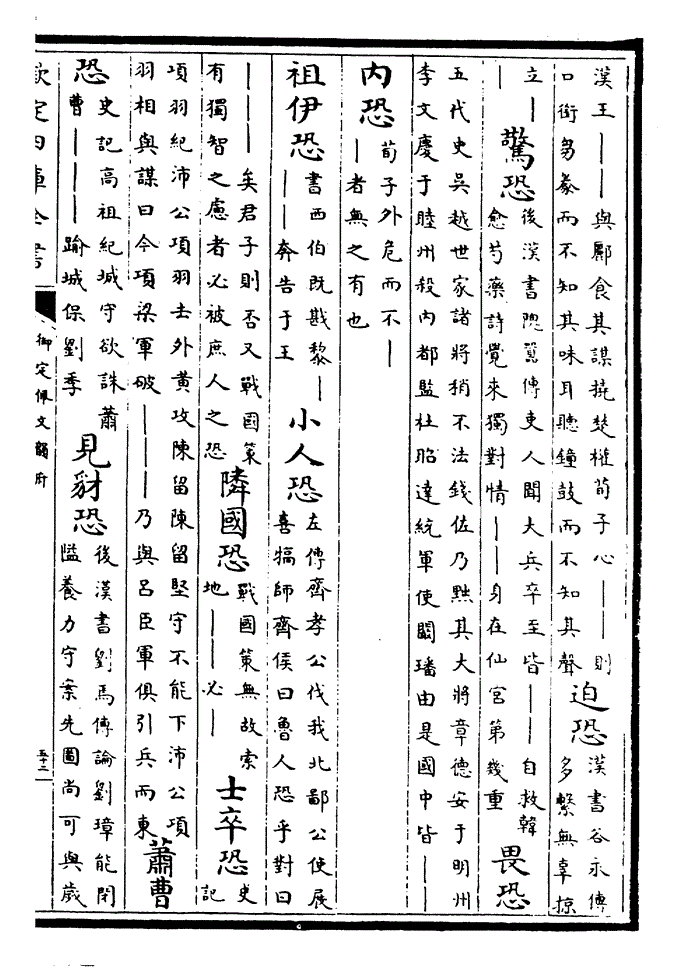 漢王———與酈食其謀撓楚權荀子心———則
口銜芻豢而不知其味耳聽鐘鼓而不知其聲
迫恐
漢書谷永傳
多繫無辜掠
立—
驚恐
後漢書隗囂傳吏人聞大兵卒至皆——自救韓
愈芍藥詩覺來獨對情——身在仙宮第幾重
畏恐
五代史吳越世家諸將稍不法錢佐乃黜其大將章德安于明州
李文慶于睦州殺内都監杜昭達統軍使闞璠由是國中皆——
内恐
荀子外危而不—
—者無之有也
祖伊恐
書西伯既戡黎—
——奔告于王
小人恐
左傳齊孝公伐我北鄙公使展
喜犒師齊侯曰魯人恐乎對曰
———矣君子則否又戰國策
有獨智之慮者必被庶人之恐
隣國恐
戰國策無故索
地——必—
士卒恐
史
記
項羽紀沛公項羽去外黄攻陳留陳留堅守不能下沛公項
羽相與謀曰今項梁軍破———乃與呂臣軍俱引兵而東
蕭曹
恐
史記高祖紀城守欲誅蕭
曹———踰城保劉季
見豺恐
後漢書劉焉傳論劉璋能閉
隘養力守案先圖尚可與歲
欽定四庫全書
御定佩文韻府
五十三